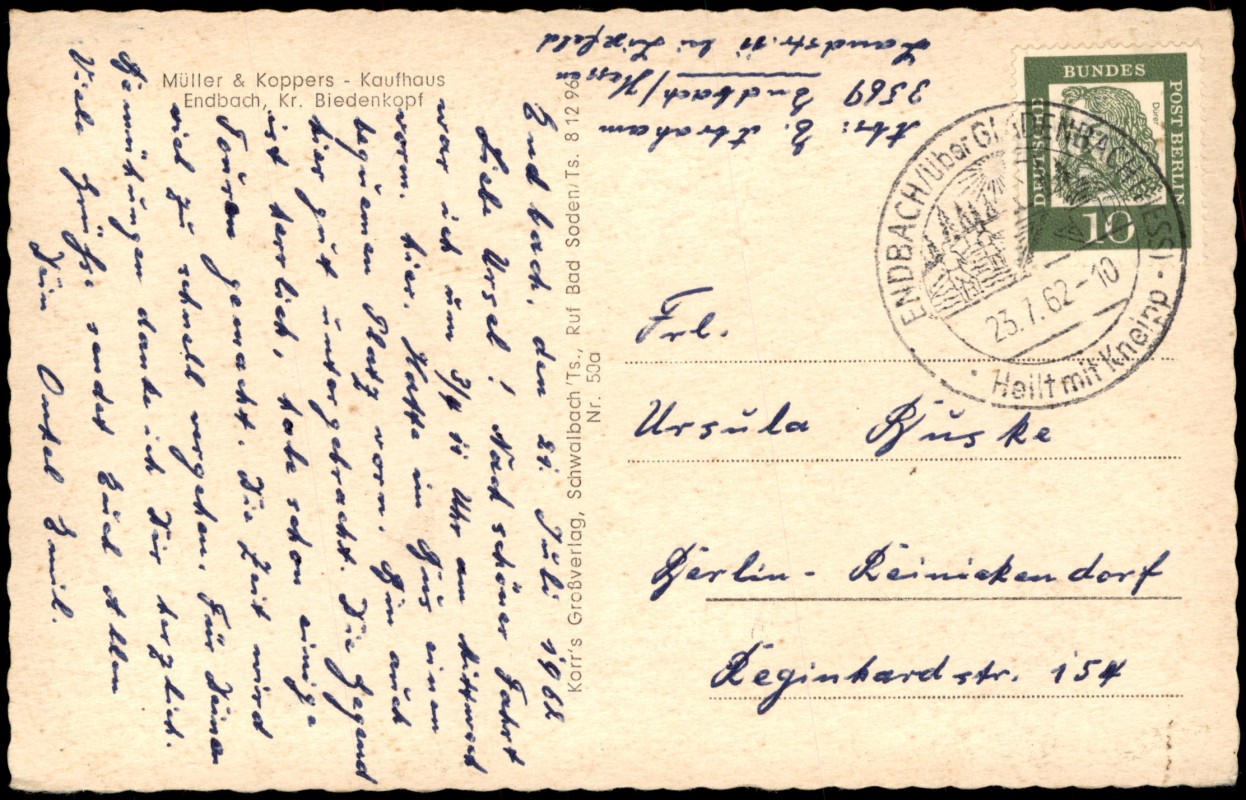 Müller & Koppers - Kaufhaus
Endbach, Kr. Biedenkopf
Endbach, den 21. Juli 1962
Liebe Ursel! Nach schöner Fahrt
war ich um 3/4 11 Uhr am Mittwoch
vorm. hier. Hatte im Bus einen
bequemen Platz vorn. Bin auch
hier gut untergebracht. Die Gegend
ist herrlich, habe schon einige
Touren gemacht. Die Zeit wird
viel zu schnell vergehen. Für Deine
Bemühungen danke ich Dir herzlich.
Viele Grüße sendet Euch Allen
Dein Onkel Emil.
Karr's Großverlag, Schwalbach/Ts., Ruf Bad Soden/Ts. 8 12 96
Nr. 50a
Abs: E. Abraham
3569 Endbach/Hessen
Landstr. 11 bei Lixfeld
DEUTSCHE BUNDES POST BERLIN
Dürer
10
ENDBACH/über GLADENBACH (HESS)
23.7.62-10
Heilt mit Kneipp
Frl.
Ursula Buske
Berlin-Reinickendorf
Reginhardstr. 154